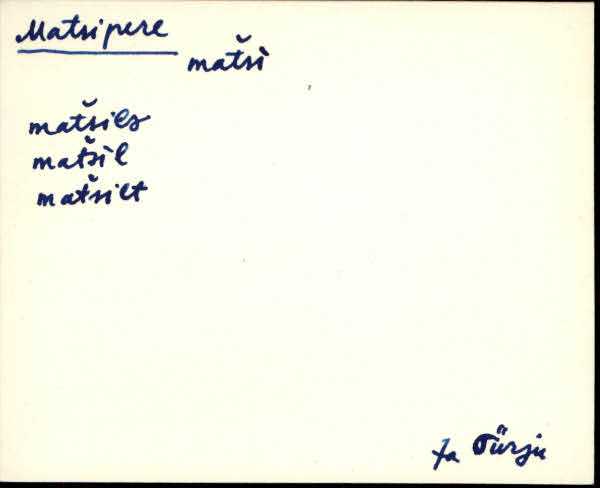 Matsipere
matši
matšile
matšil
matšilt
Ja Türju